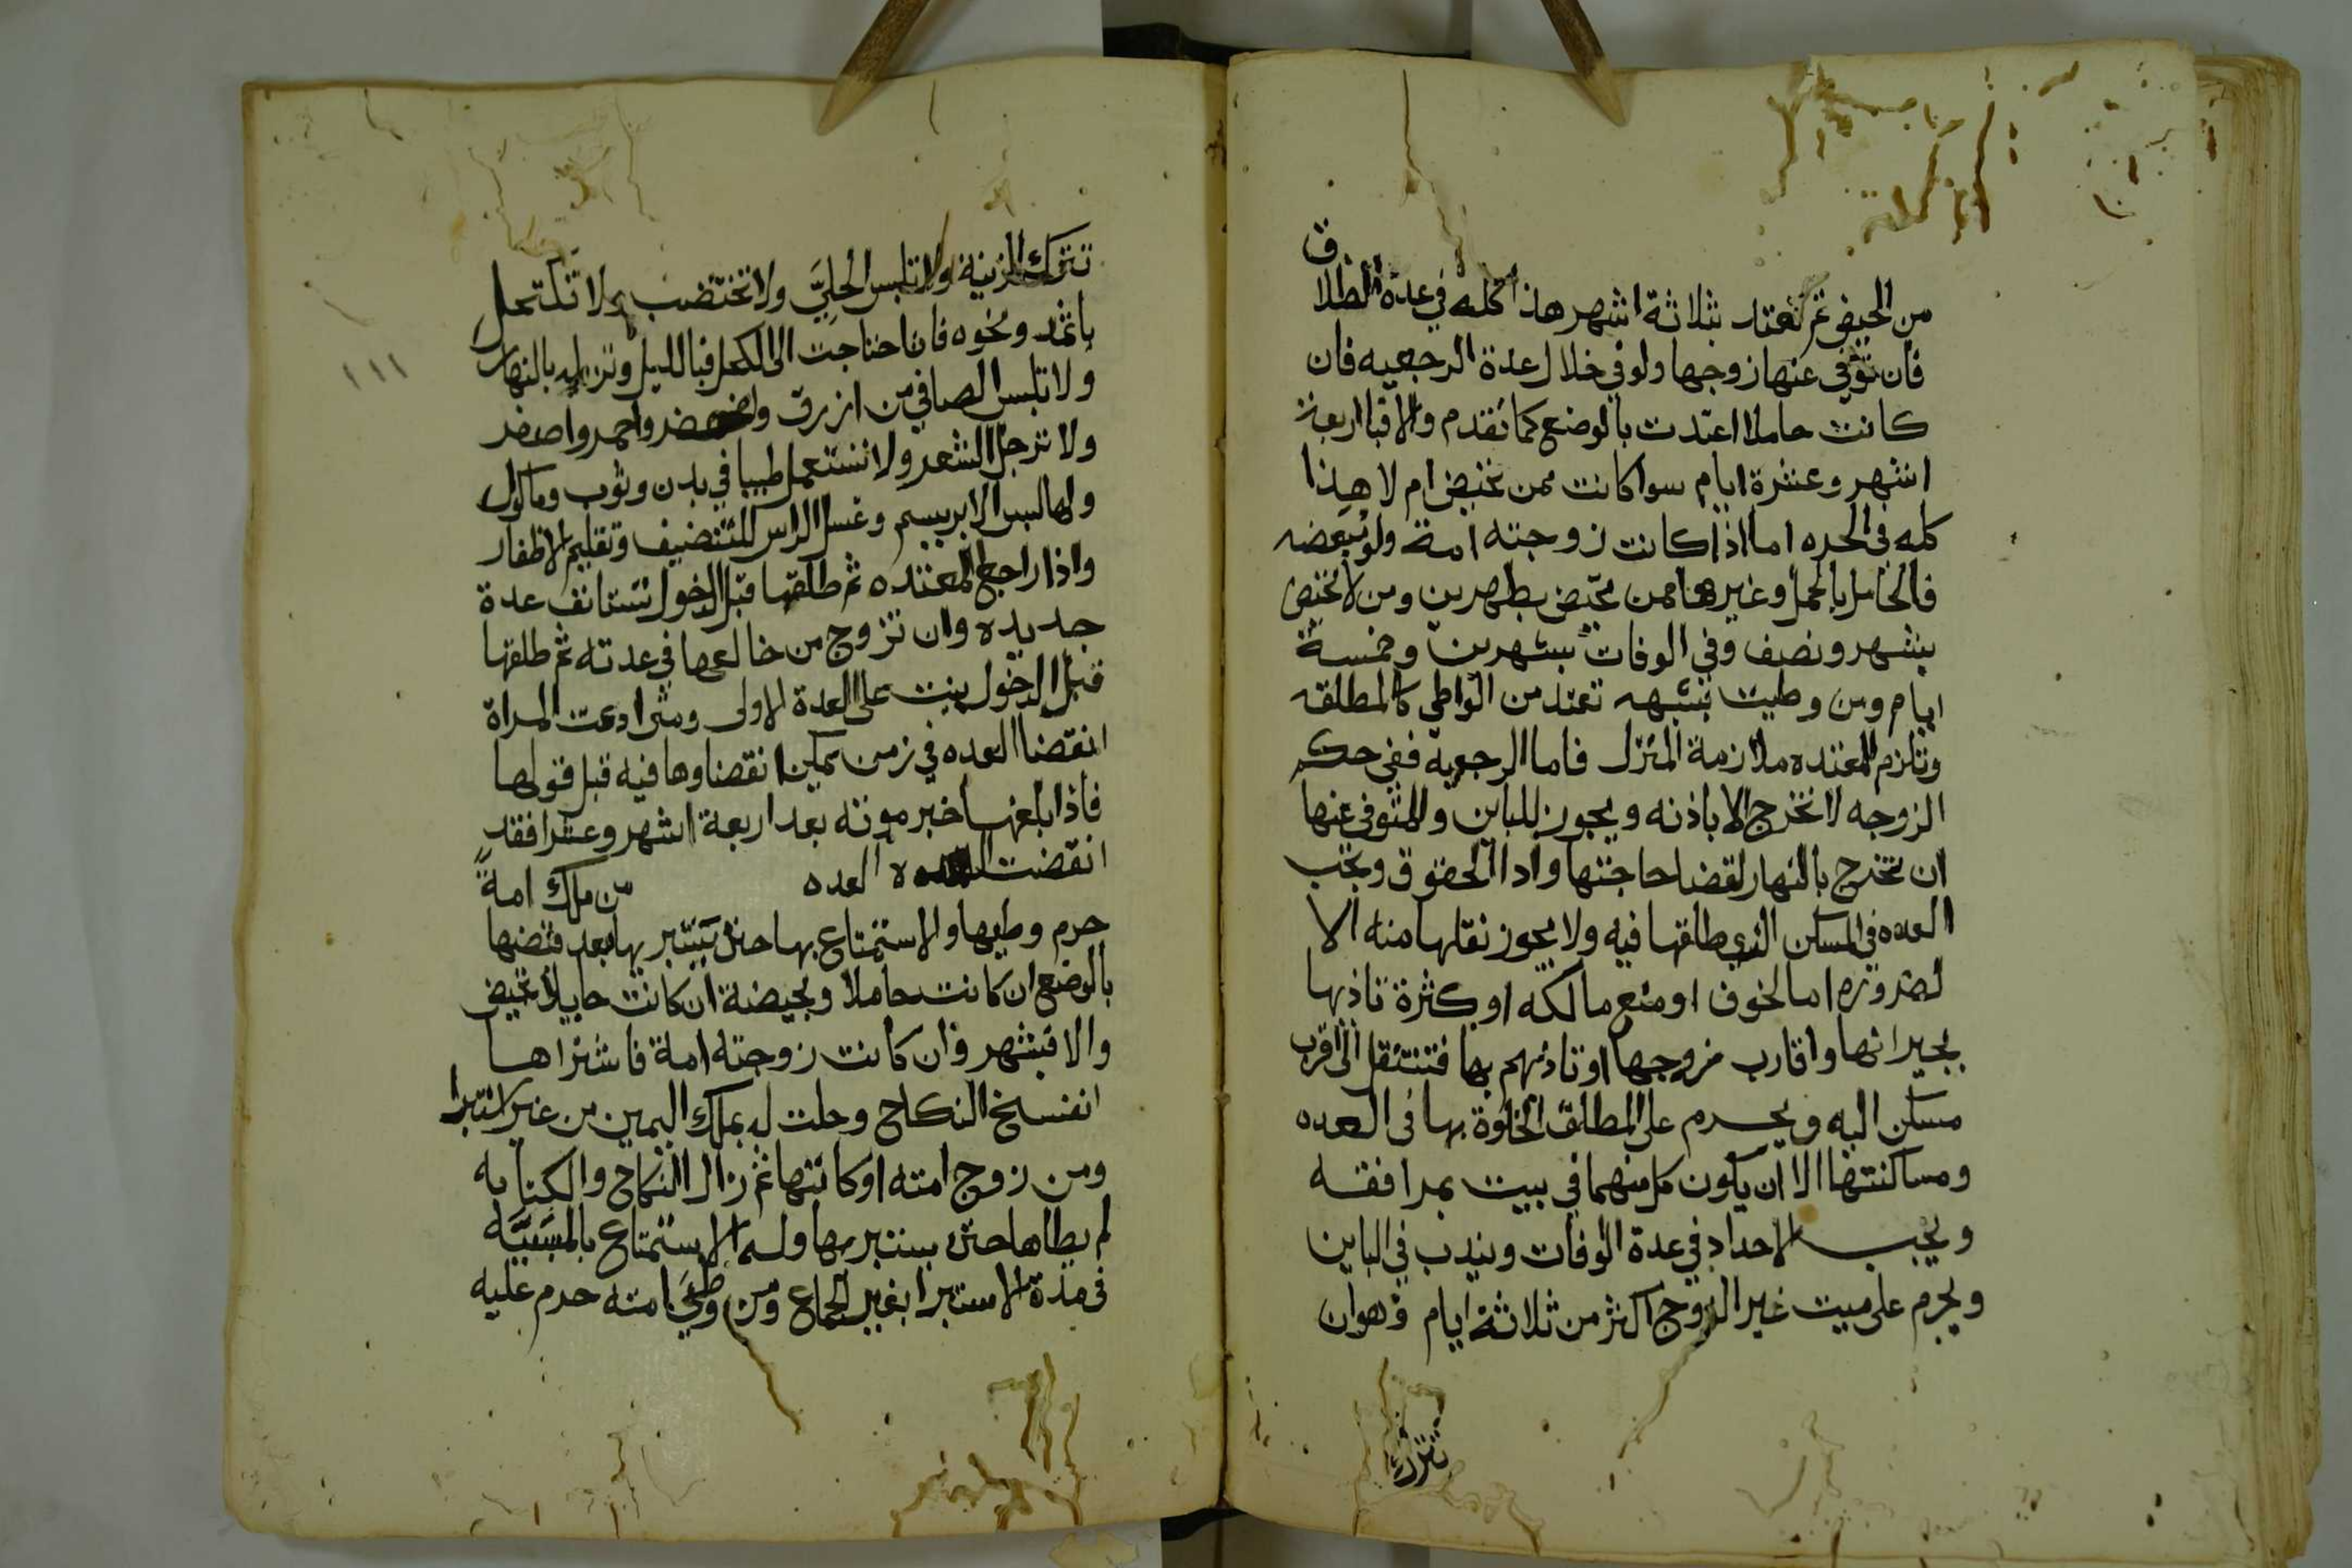 من الحيض ثم تعتد بثلاثة اشهر هذا كله في عدة الطلاق
فان توفي عنها زوجها ولو في خلال عدة الرجعيه فان
كانت حاملا اعتدت بالوضع كما تقدم والا فباربعة
اشهر وعشرة ايام سوا كانت ممن تحيض ام لا هذا
كله في الحره اما اذا كانت زوجته امة ولو مبعضه
فالحامل بالحمل وغيرها ممن تحيض بطهرين ومن لا تحيض
بشهر ونصف وفي الوفات بشهرين وخمسة
ايام ومن وطيت بشبهه تعتد من الواطي كالمطلقه
وتلزم المعتده ملازمة المنزل فاما الرجعيه ففي حكم
الزوجه لا تخرج الا باذنه ويجوز للباين والمتوفي عنها
ان تخرج بالنهار لقضا حاجتها وادا الحقوق وتجب
العده في المسكن الذي طلقها فيه ولا يجوز نقلها منه الا
لضروره اما لخوف او منع مالكه او كثرة تاذيها
بجيرانها واقارب زوجها او تاذيهم بها فتنتقل الى اقرب
مسكن اليه ويحرم على المطلق الخلوة بها في العده
ومساكنتها الا ان يكون كل منهما في بيت بمرافقه
ويجب الاحداد في عدة الوفات ويندب في الباين
ويحرم على ميت غير الزوج اكثر من ثلاثة ايام وهو ان
تترك
١١١
تترك الزينة ولا تلبس الحلي ولا تختضب ولا تكتحل
باثمد ونحوه فان احتاجت الى الكحل فبالليل وتزيله بالنهار
ولا تلبس الصافي من ازرق واخضر واحمر واصفر
ولا ترجل الشعر ولا تستعمل طيبا في بدن وثوب وماكول
ولها لبس الابريسم وغسل الراس للتنضيف وتقليم الاظفار
واذا راجع المعتده ثم طلقها قبل الدخول تستانف عدة
جديده وان تزوج من خالعها في عدته ثم طلقها
قبل الدخول بنت على العدة الاولى ومتى ادعت المراة
انقضا العده في زمن يمكن انقضاوها فيه قبل قولها
فاذا بلغها خبر موته بعد اربعة اشهر وعشرا فقد
انقضت العده من ملك امة
حرم وطيها والاستمتاع بها حتى يستبريها بعد قبضها
بالوضع ان كانت حاملا وبحيضة ان كانت حايلا تحيض
والا فبشهر وان كانت زوجته امة فاشتراها
انفسخ النكاح وحلت له بملك اليمين من غير استبرا
ومن زوج امته او كاتبها ثم زال النكاح والكتابه
لم يطاها حتى يستبريها وله الاستمتاع بالمسبية
في مدة الاستبرا بغير الجماع ومن وطي امته حرم عليه